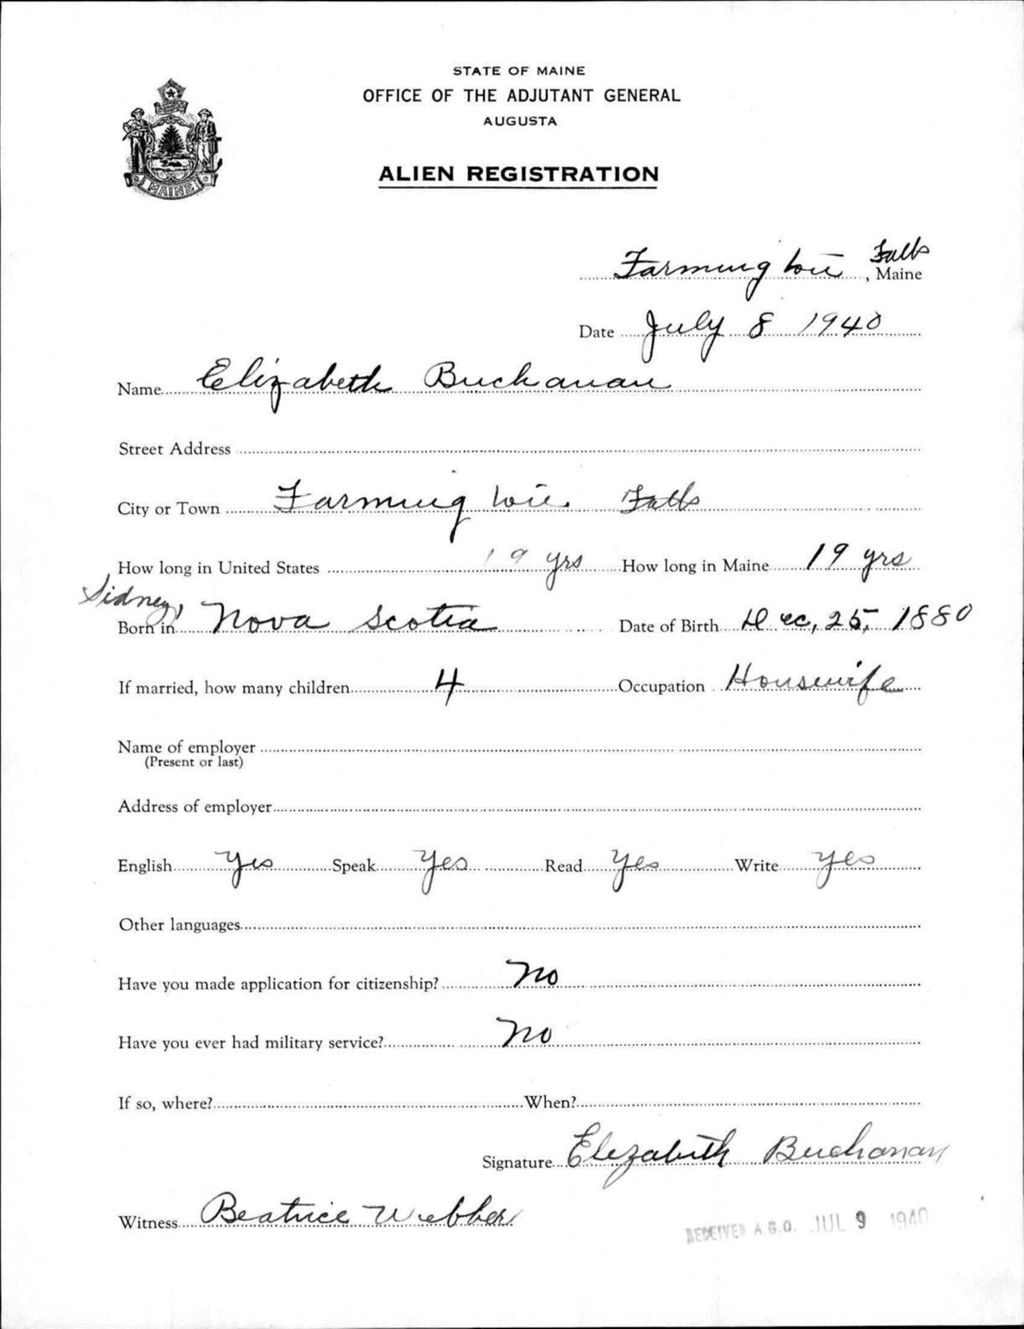 STATE OF MAINE
OFFICE OF THE ADJUTANT GENERAL
AUGUSTA
ALIEN REGISTRATION
MAINE
Farmington Falls, Maine
Date July 8 1940
Name Elizabeth Buchanan
Street Address
City or Town Farmington Falls
How long in United States 19 yrs How long in Maine 19 yrs
Born in Sidney, Nova Scotia Date of Birth Dec, 25, 1880
If married, how many children 4 Occupation Housewife
Name of employer
(Present or last)
Address of employer
English Yes Speak Yes Read Yes Write Yes
Other languages
Have you made application for citizenship? No
Have you ever had military service? No
If so, where? When?
Signature Elizabeth Buchanan
Witness Beatrice Webber
RECEIVED A.G.O. JUL 9 1940